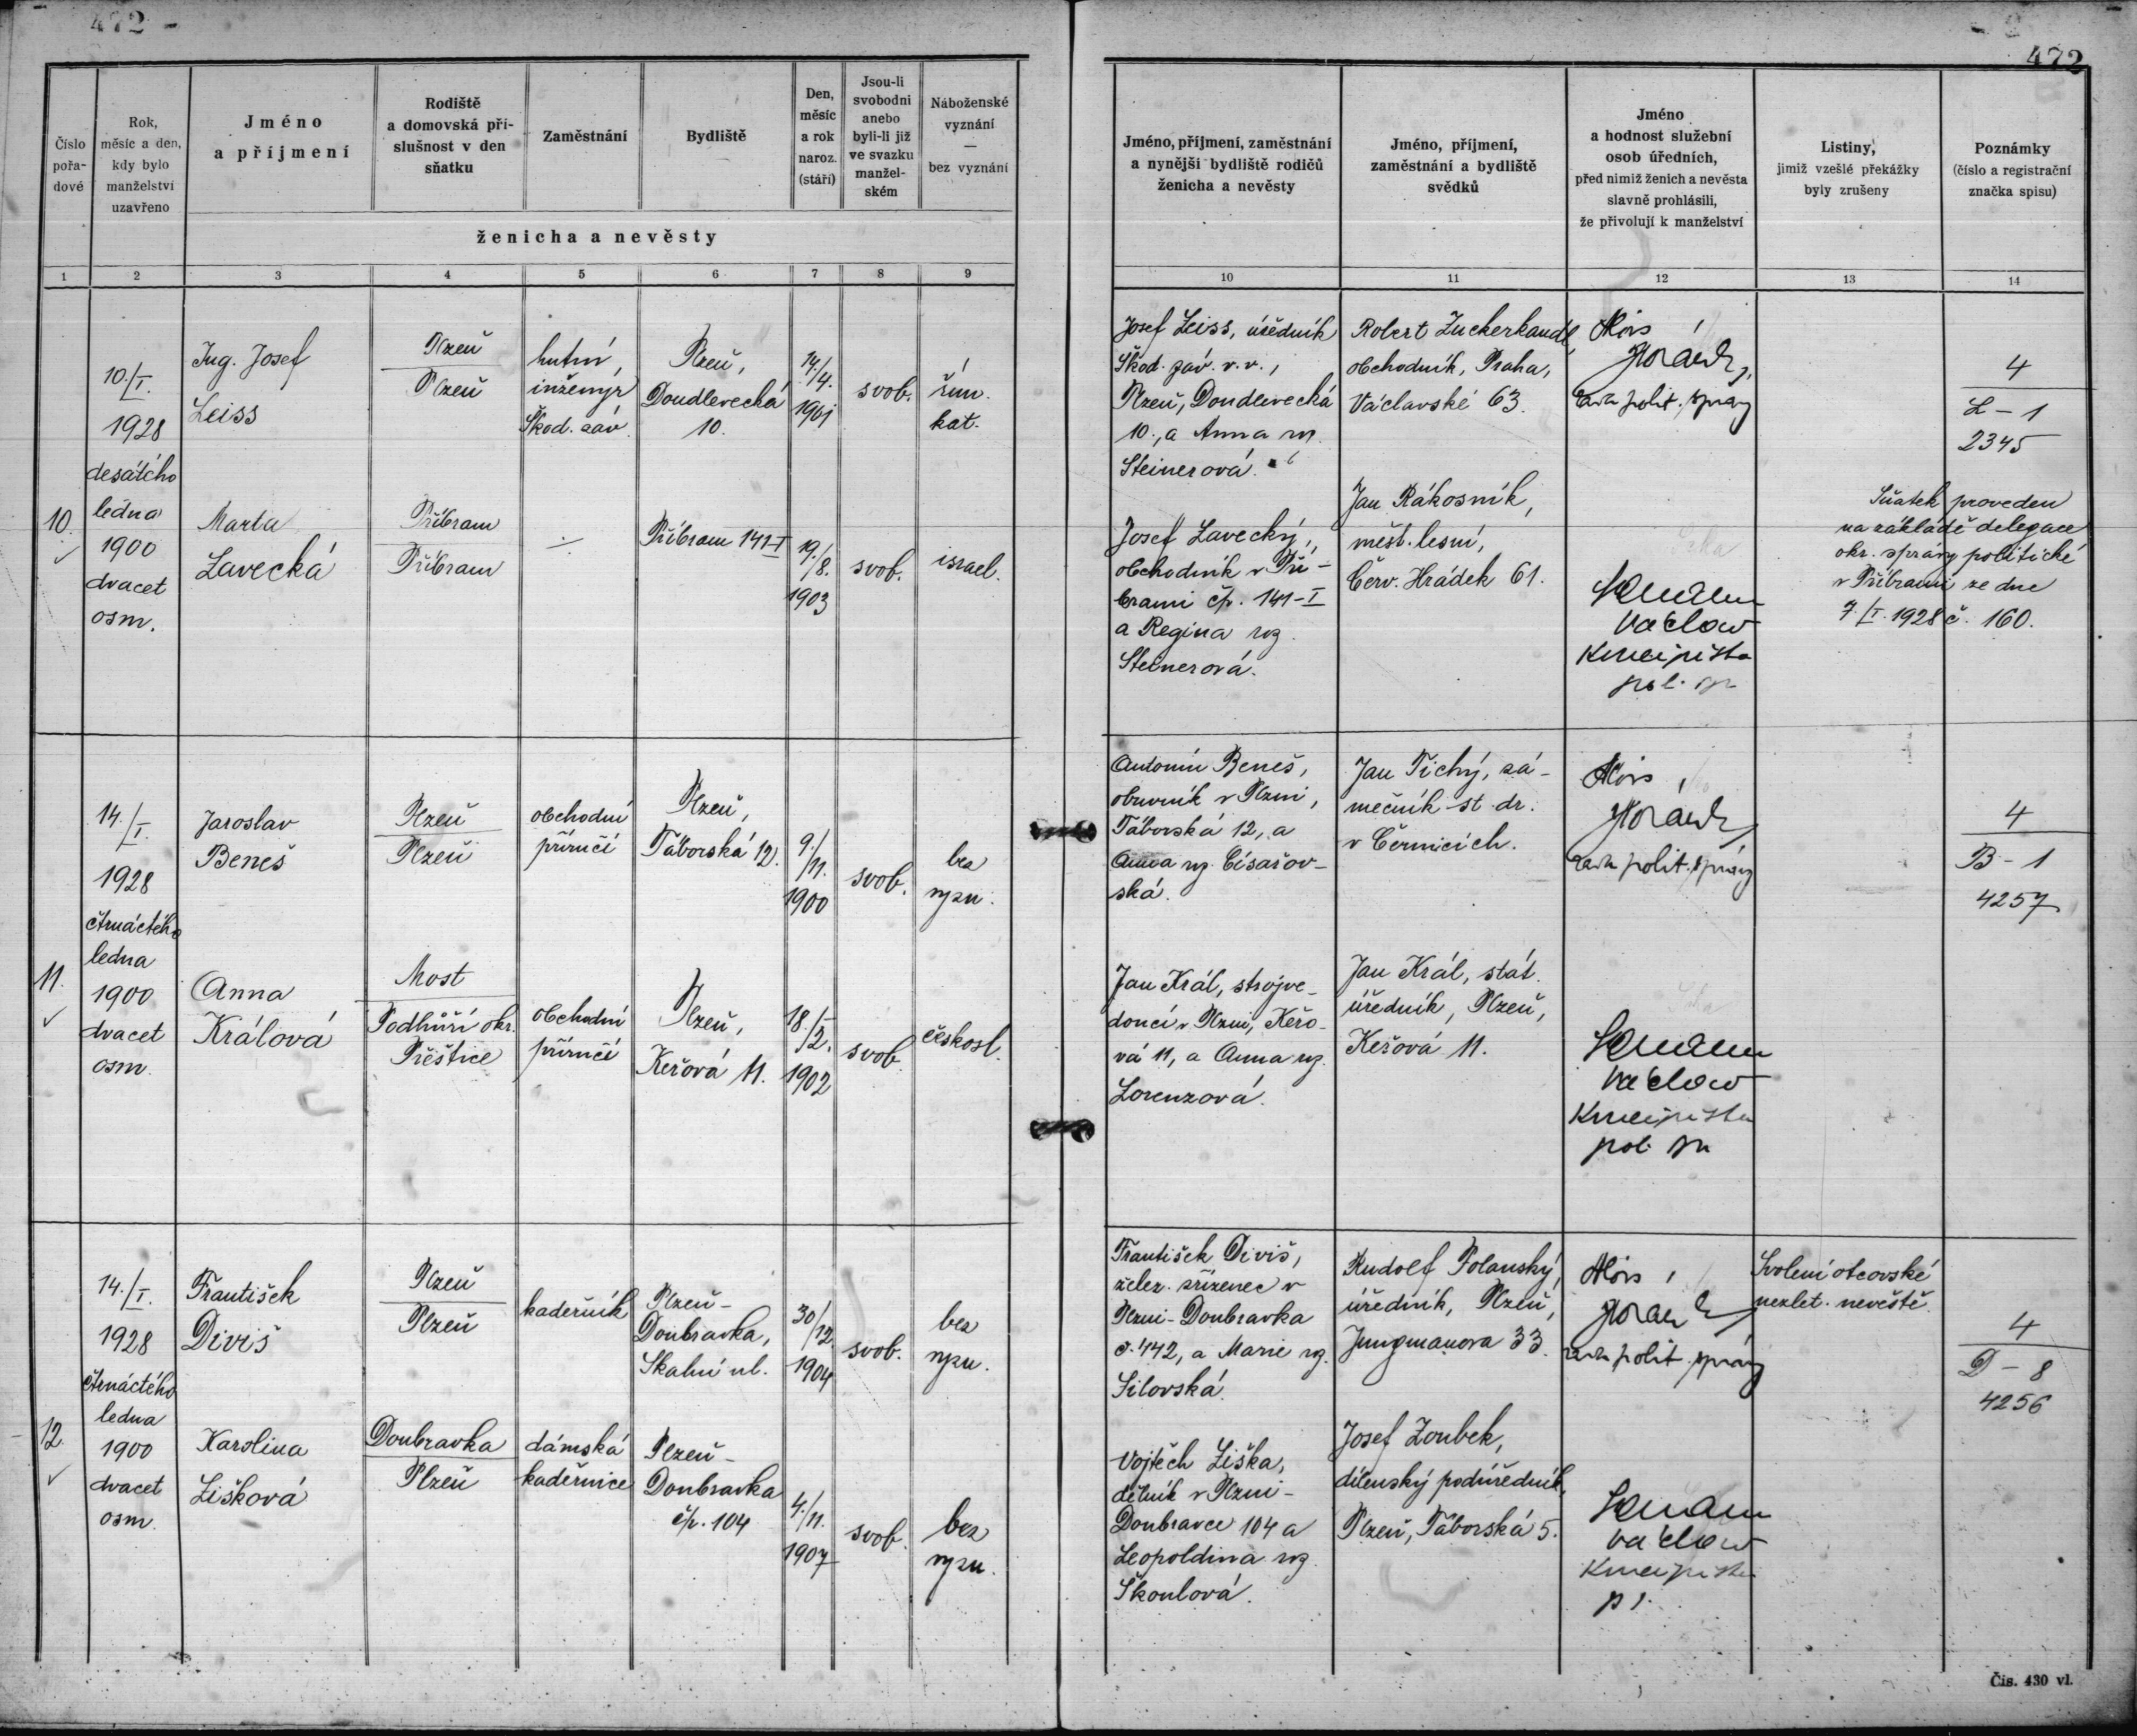 472
472
Číslo pořa-dové
Rok, měsíc a den, kdy bylo manželství uzavřeno
Jméno a příjmení
Rodiště a domovská pří-slušnost v den sňatku
Zaměstnání
Bydliště
Den, měsíc a rok naroz. (stáří)
Jsou-li svobodni anebo byli-li již ve svazku manžel-ském
Náboženské vyznání — bez vyznání
ženicha a nevěsty
Jméno, příjmení, zaměstnání a nynější bydliště rodičů ženicha a nevěsty
Jméno, příjmení, zaměstnání a bydliště svědků
Jméno a hodnost služební osob úředních, před nimiž ženich a nevěsta slavně prohlásili, že přivolují k manželství
Listiny, jimiž vzešlé překážky byly zrušeny
Poznámky (číslo a registrační značka spisu)
1 2 3 4 5 6 7 8 9 10 11 12 13 14
10.
10./I.
1928
desátého
ledna
1900
dvacet
osm.
Ing. Josef
Leiss
Plzeň
Plzeň
hutní
inženýr
Škod. záv.
Plzeň,
Doudlevecká
10.
14./4.
1901
svob.
řím.
kat.
Marta
Lavecká
Příbram
Příbram
Příbram 141-I
19./8.
1903
svob.
israel.
Josef Leiss, úředník
Škod. záv. v. v.,
Plzeň, Doudlevecká
10., a Anna roz.
Steinerová.
Josef Lavecký,
obchodník v Pří-
brami čp. 141-I
a Regina roz.
Steinerová.
Robert Zuckerkandl,
obchodník, Praha,
Václavské 63.
Jan Rákosník,
měst. lesní,
Červ. Hrádek 61.
Alois
Horák,
rada polit. správy
Václav
koncipista
pol. spr
Sňatek proveden
na základě delegace
okr. správy politické
v Příbrami ze dne
7./I. 1928 č. 160.
4
L - 1
2345
11.
14./I.
1928
čtrnáctého
ledna
1900
dvacet
osm.
Jaroslav
Beneš
Plzeň
Plzeň
obchodní
příručí
Plzeň,
Táborská 12.
9./11.
1900
svob.
bez
vyzn.
Anna
Králová
Most
Podhůří okr.
Přeštice
obchodní
příručí
Plzeň,
Keřová 11.
18./2.
1902
svob.
českosl.
Antonín Beneš,
obuvník v Plzni,
Táborská 12, a
Anna roz. Císařov-
ská.
Jan Král, strojve-
doucí v Plzni, Keřo-
vá 11, a Anna roz.
Lorenzová.
Jan Tichý, zá-
mečník st. dr.
v Černicích.
Jan Král, stát.
úředník, Plzeň,
Keřová 11.
Alois
Horák
rada polit. správy
Václav
koncipista
pol. spr
4
B - 1
4257
12.
14./I.
1928
čtrnáctého
ledna
1900
dvacet
osm.
František
Diviš
Plzeň
Plzeň
kadeřník
Plzeň-
Doubravka,
Skalní ul.
30./12.
1904
svob.
bez
vyzn.
Karolina
Lišková
Doubravka
Plzeň
dámská
kadeřnice
Plzeň-
Doubravka
čp. 104
4./11.
1907
svob.
bez
vyzn.
František Diviš,
želez. zřízenec v
Plzni-Doubravka
č. 442, a Marie roz.
Silovská.
Vojtěch Liška,
dělník v Plzni-
Doubravce 104 a
Leopoldina roz.
Škoulová.
Rudolf Polanský,
úředník, Plzeň,
Jungmanova 33.
Josef Zoubek,
dílenský podúředník,
Plzeň, Táborská 5.
Alois
Horák
rada polit. správy
Václav
koncipista
Svolení otcovské
nezlet. nevěstě.
4
D - 8
4256
Čís. 430 vl.